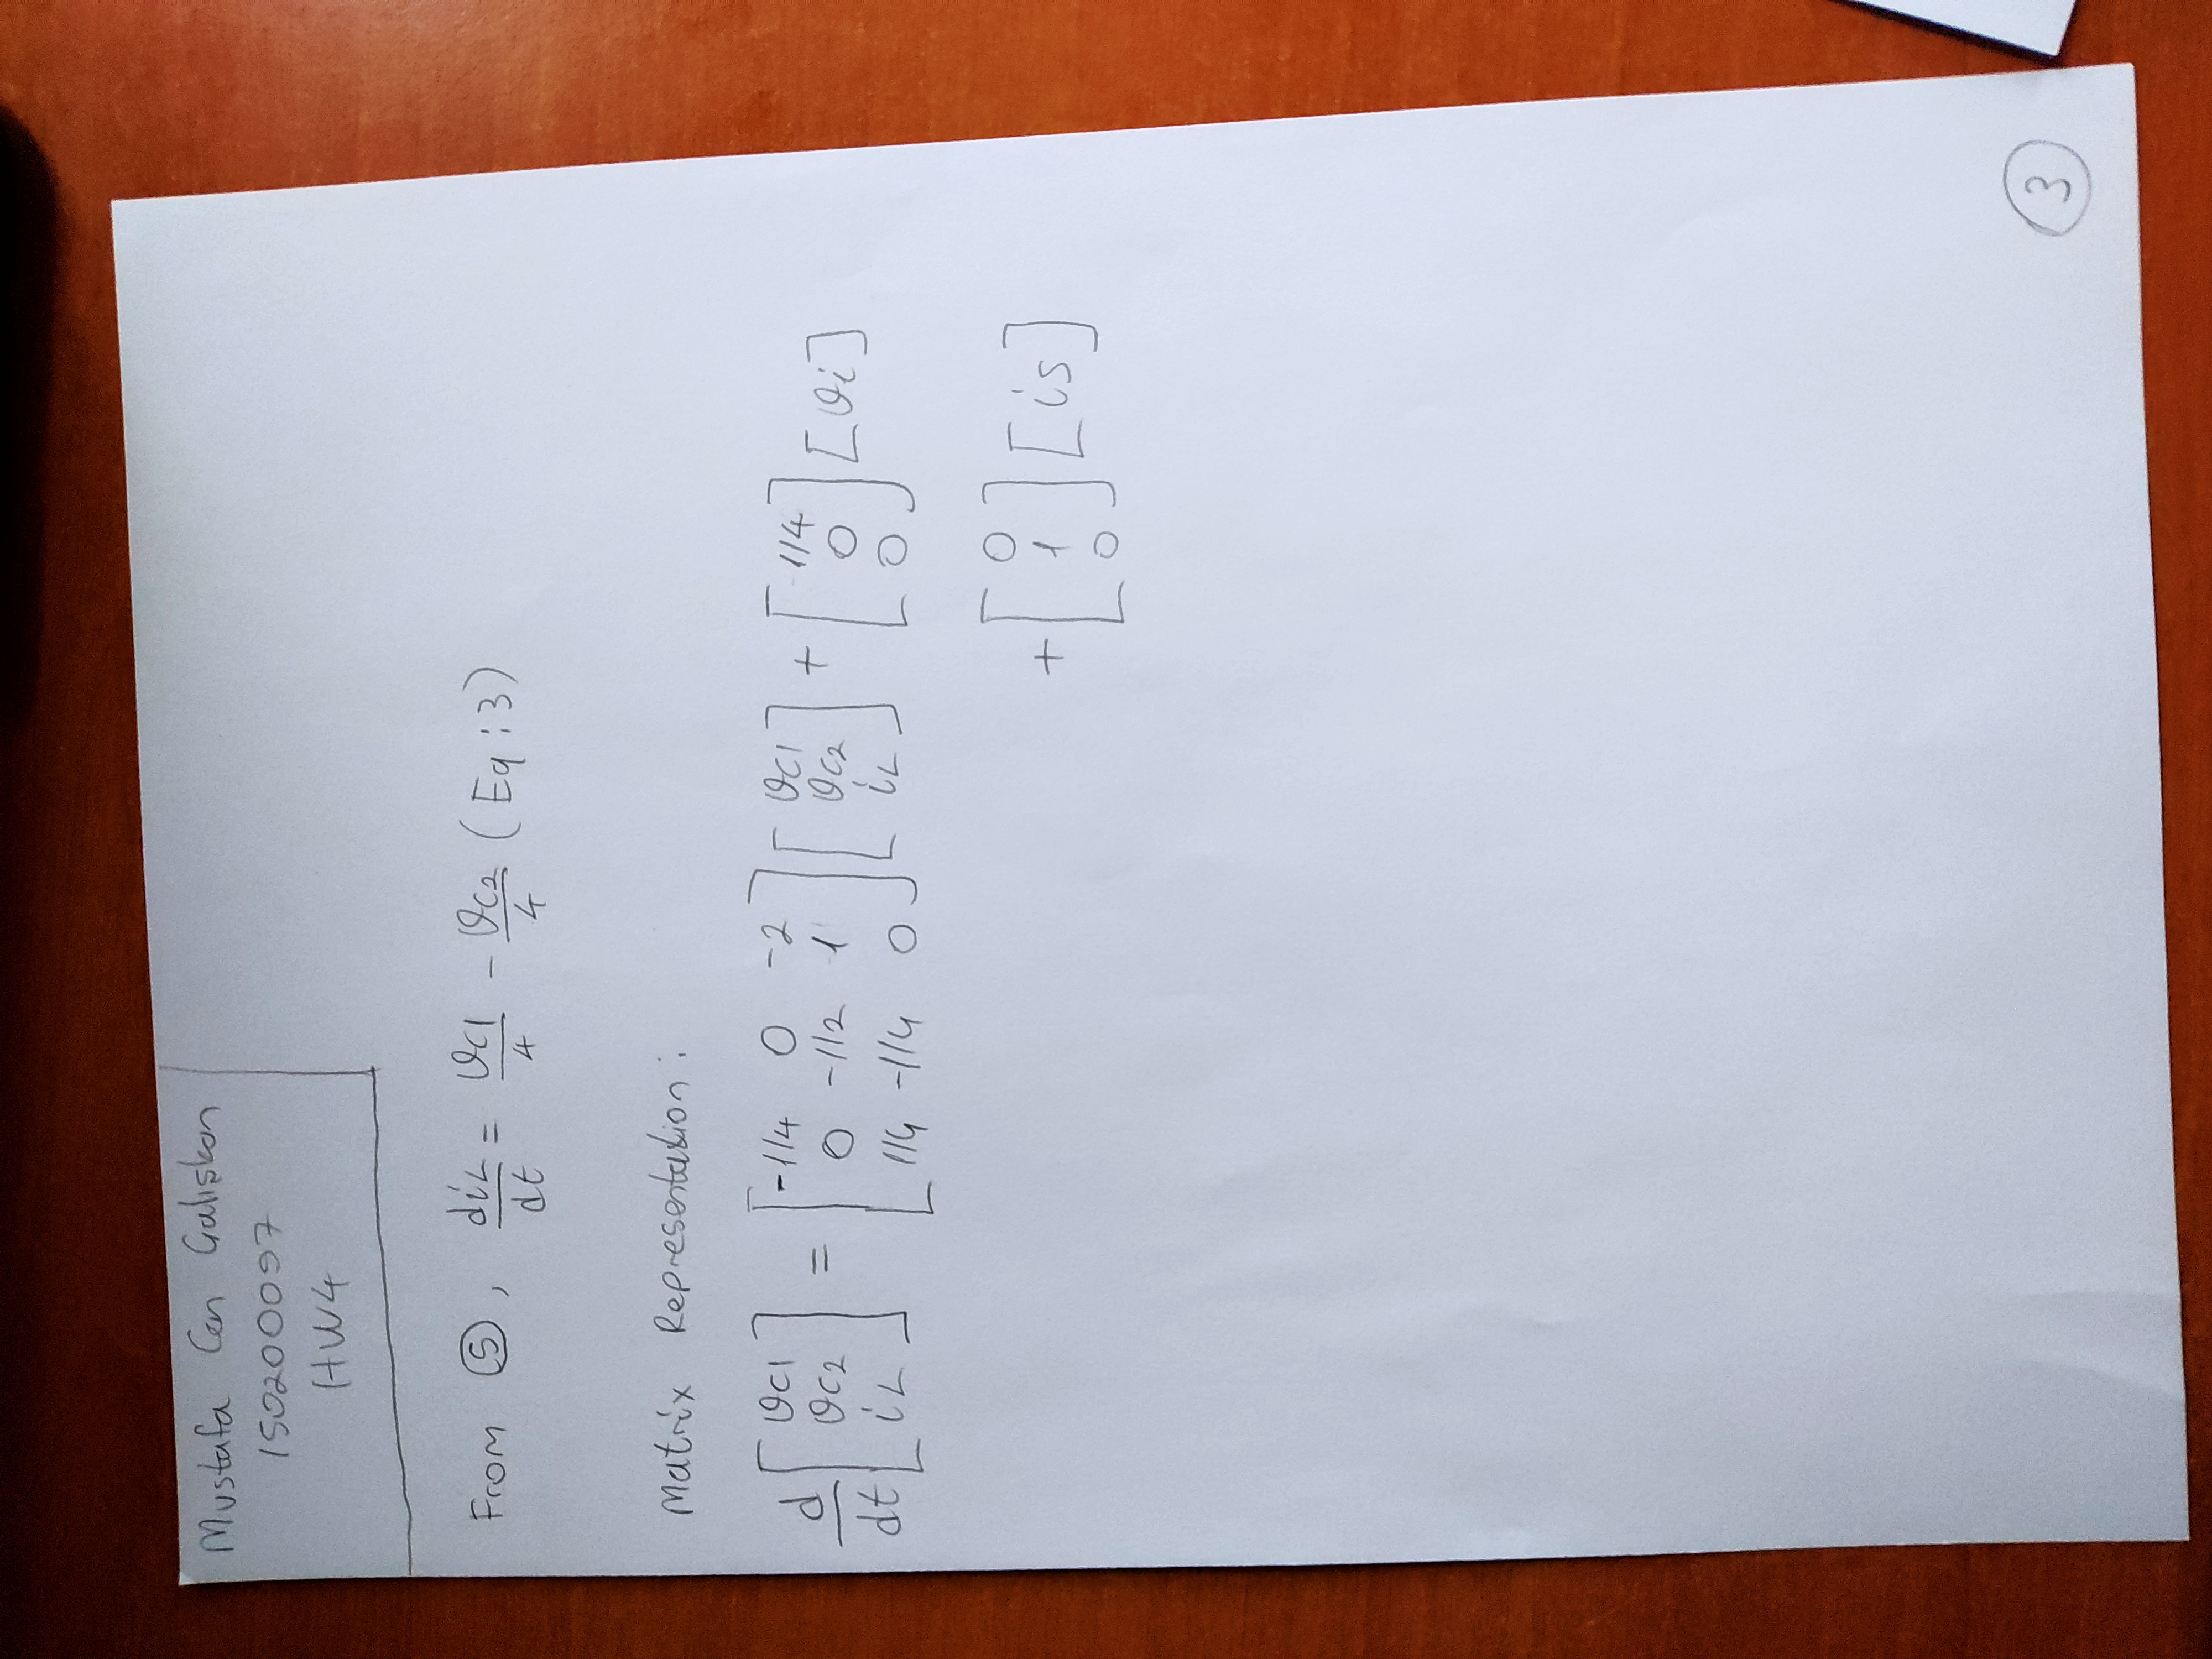 Mustafa Can Çalışkan
150200097
HW4
From ⑤, diL/dt = vC1/4 - vC2/4 (Eq:3)
Matrix Representation:
d/dt [vC1; vC2; iL] = [-1/4 0 -2; 0 -1/2 1; 1/4 -1/4 0] [vC1; vC2; iL] + [1/4; 0; 0] [vi]
+ [0; 1; 0] [is]
3